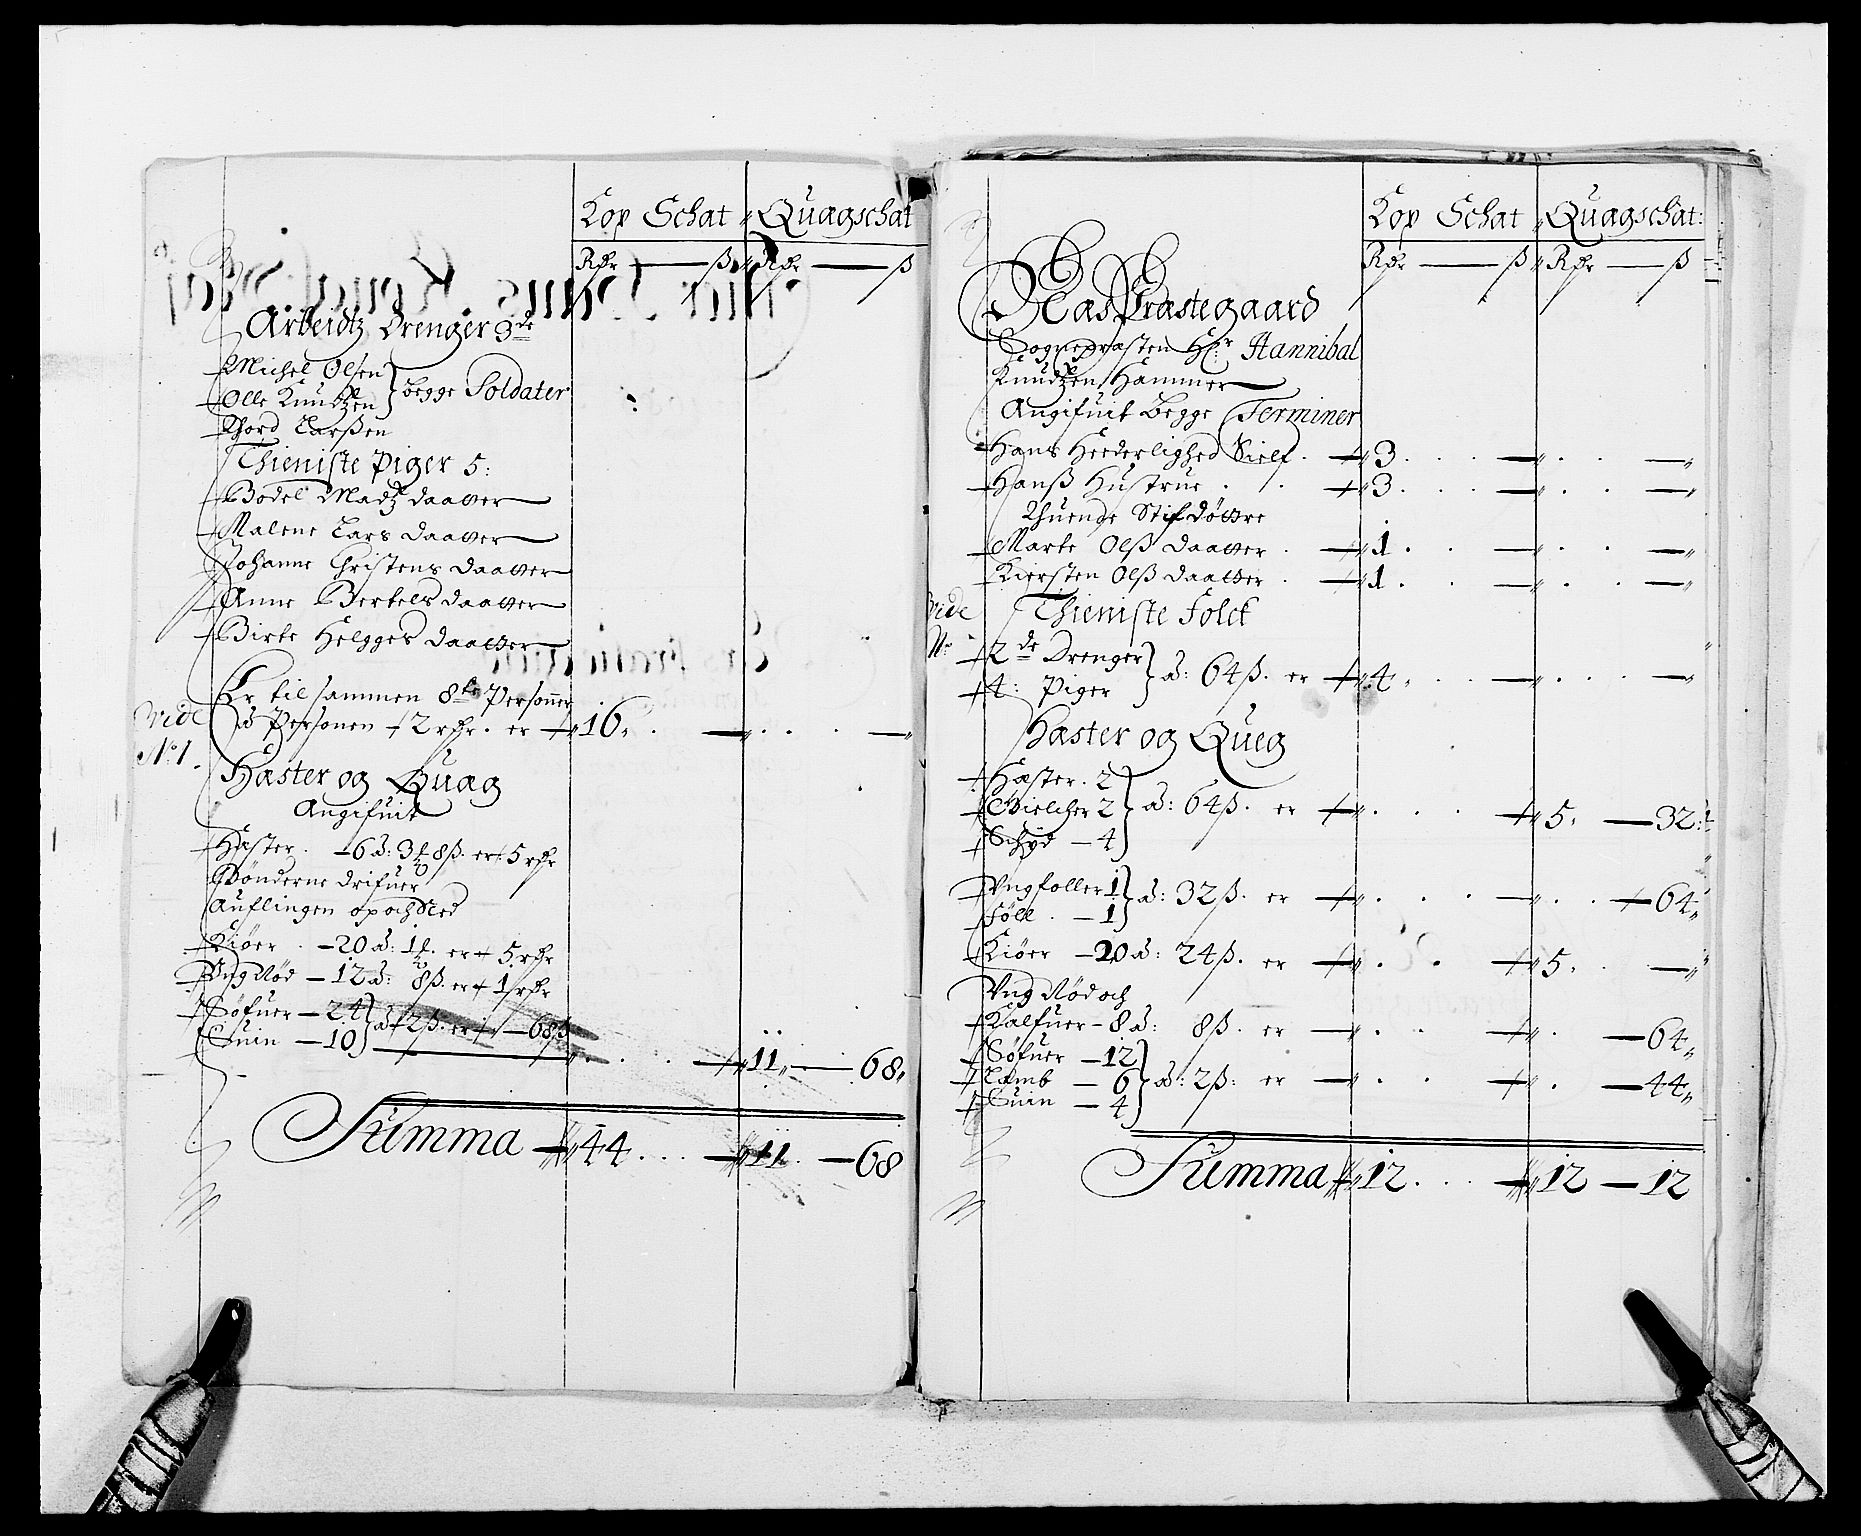 Kop Schat „ Quagschat
Rdr — ß „ Rdr — ß
Arbeidtz Drenger 3de
Michel Olsen
Olle Knudtzen } begge Soldater
Thord Larßen
Thieniste Piger 5:
Bodel Madtz daatter
Malene Lars daatter
Johanne Christens daatter
Anne Bertels daatter
Birte Helgges daatter
Er til sammen 8te Personner
Vide
No 1.
Personen 2 rdr. er 16. . — . . . —
Hæster og Quæg
Angifuit
Hæster . — 6 a: 3 8ß. er 5 rdr
Bønderne drifuer
Auflingen op och Ned
Kiøer . — 20 a: 1 . er 5 rdr
Ung Nød — 12 a: 8ß. er 1 rdr
Søfuer — 24
Suin — 10 } a 2ß. er — 68ß
11 „ — 68 „
Summa 44 . . . — 11 . — 68
Kop Schat „ Quagschat:
Rdr — ß „ Rdr — ß
Næs Præstegaard
Sognepræsten Hr: Hannibal
Knudtzen Hammer
Angifuit begge Terminer
Hans Hederlighed Sielf . 3 . . . — „ . . — „
Hanß Hustrue . . 3 . . . — „ . . — „
Thuende Stifdøttre
Marte Olß daatter . 1 . . — „ . . — „
Kiersten Olß daatter . 1 . . — „ . . — „
Vide
No
Thieniste Folck
2de Drenger
4: Piger } a: 64ß. er 4 . . — „ . . . — „
Hæster og Queg
Hæster . 2
Bielcher 2
Schyd — 4 } a: 64ß. er „ . . . 5 . — 32
Ungfoller 1
Føll . — 1 } a: 32ß. er „ . . . — „ . . 64 „
Kiøer — 20 a: 24ß. er „ . . 5 . . — „
Ung Nød och
Kalfuer — 8 a: 8ß. er — „ . . „ . — 64 „
Søfuer — 12
Lamb — 6
Suin — 4 } a: 2ß: er — „ . . „ . — 44 „
Summa 12 . . . — 12 — 12